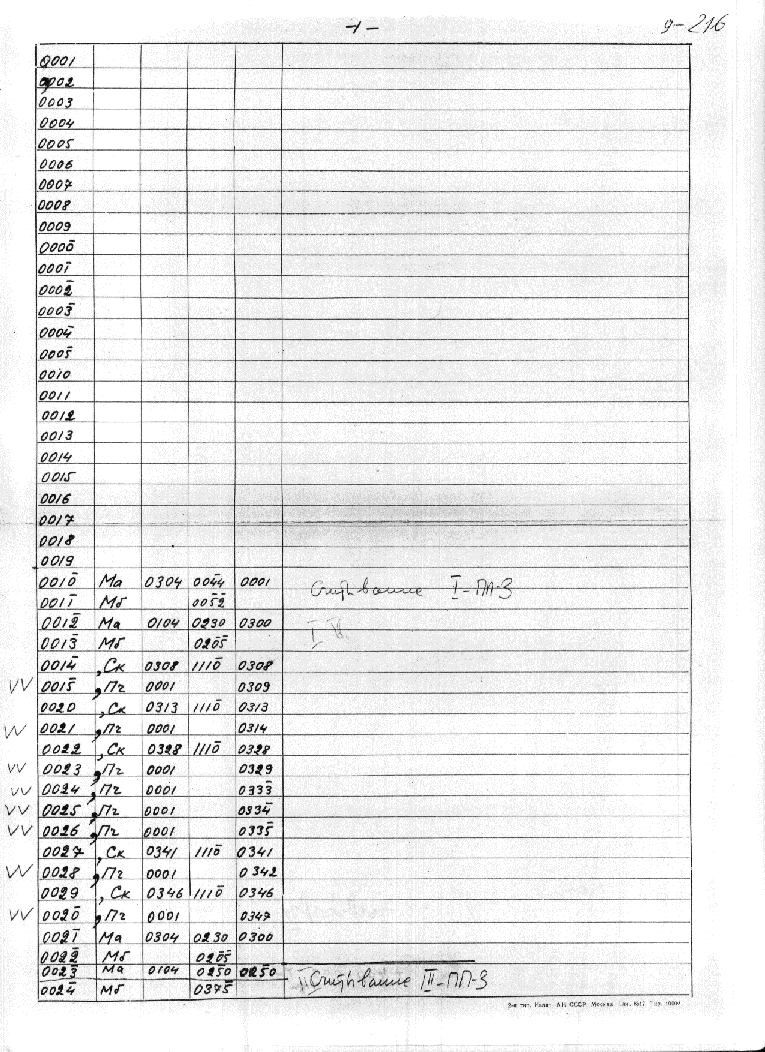 -1- 9-216
0001
0002
0003
0004
0005
0006
0007
0008
0009
0000̄
0001̄
0002̄
0003̄
0004̄
0005̄
0010
0011
0012
0013
0014
0015
0016
0017
0018
0019
0010̄ Ма 0304 004̄4̄ 0001 I-ПП-3
0011̄ Мб 005̄2̄
0012̄ Ма 0104 0230 0300 I
0013̄ Мб 020̄5̄
0014̄ ,Ск 0308 1110̄ 0308
VV 0015̄ ,Пч 0001 0309
0020 ,Ск 0313 1110̄ 0313
VV 0021 ,Пч 0001 0314
0022 ,Ск 0328 1110̄ 0328
VV 0023 ,Пч 0001 0329
VV 0024 ,Пч 0001 0333̄
VV 0025 ,Пч 0001 0334̄
VV 0026 ,Пч 0001 0335̄
0027 ,Ск 0341 1110̄ 0341
VV 0028 ,Пч 0001 0342
0029 ,Ск 0346 1110̄ 0346
VV 0020̄ ,Пч 0001 0347
0021̄ Ма 0304 0230 0300
0022̄ Мб 020̄5̄
0023̄ Ма 0104 025̄0 025̄0 II-ПП-3
0024̄ Мб 0375̄